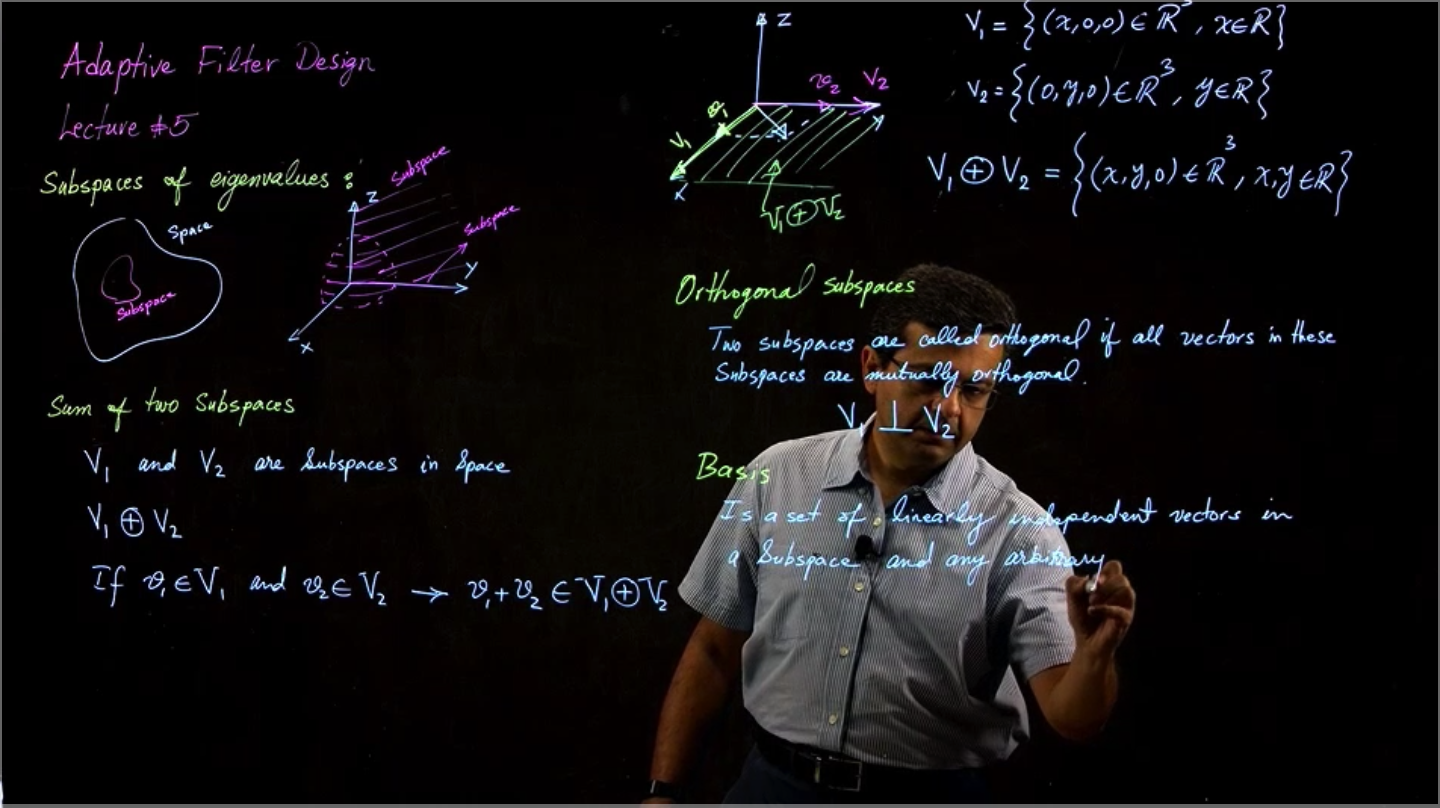 Adaptive Filter Design
Lecture #5
Subspaces of eigenvalues :
Space
Subspace
Z
Subspace
Subspace
Y
X
Sum of two Subspaces
V₁ and V₂ are Subspaces in Space
V₁ ⊕ V₂
If v₁ ∈ V₁ and v₂ ∈ V₂ → v₁ + v₂ ∈ V₁ ⊕ V₂
Z
v₂ V₂
v₁
V₁
X
V₁ ⊕ V₂
V₁ = {(x,0,0) ∈ ℝ³, x ∈ ℝ}
V₂ = {(0,y,0) ∈ ℝ³, y ∈ ℝ}
V₁ ⊕ V₂ = {(x,y,0) ∈ ℝ³, x,y ∈ ℝ}
Orthogonal Subspaces
Two subspaces are called orthogonal if all vectors in these
Subspaces are mutually orthogonal.
V₁ ⊥ V₂
Basis
Is a set of linearly independent vectors in
a Subspace and any arbitrary